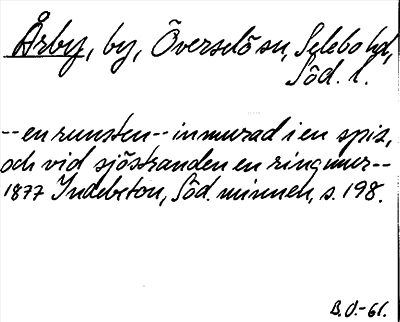 Årby, by, Överselö sn, Selebo hd,
Söd. l.
-- en runsten -- inmurad i en spis,
och vid sjöstranden en ringmur --
1877 Indebetou, Söd. minnen, s. 198.
B.O.-61.